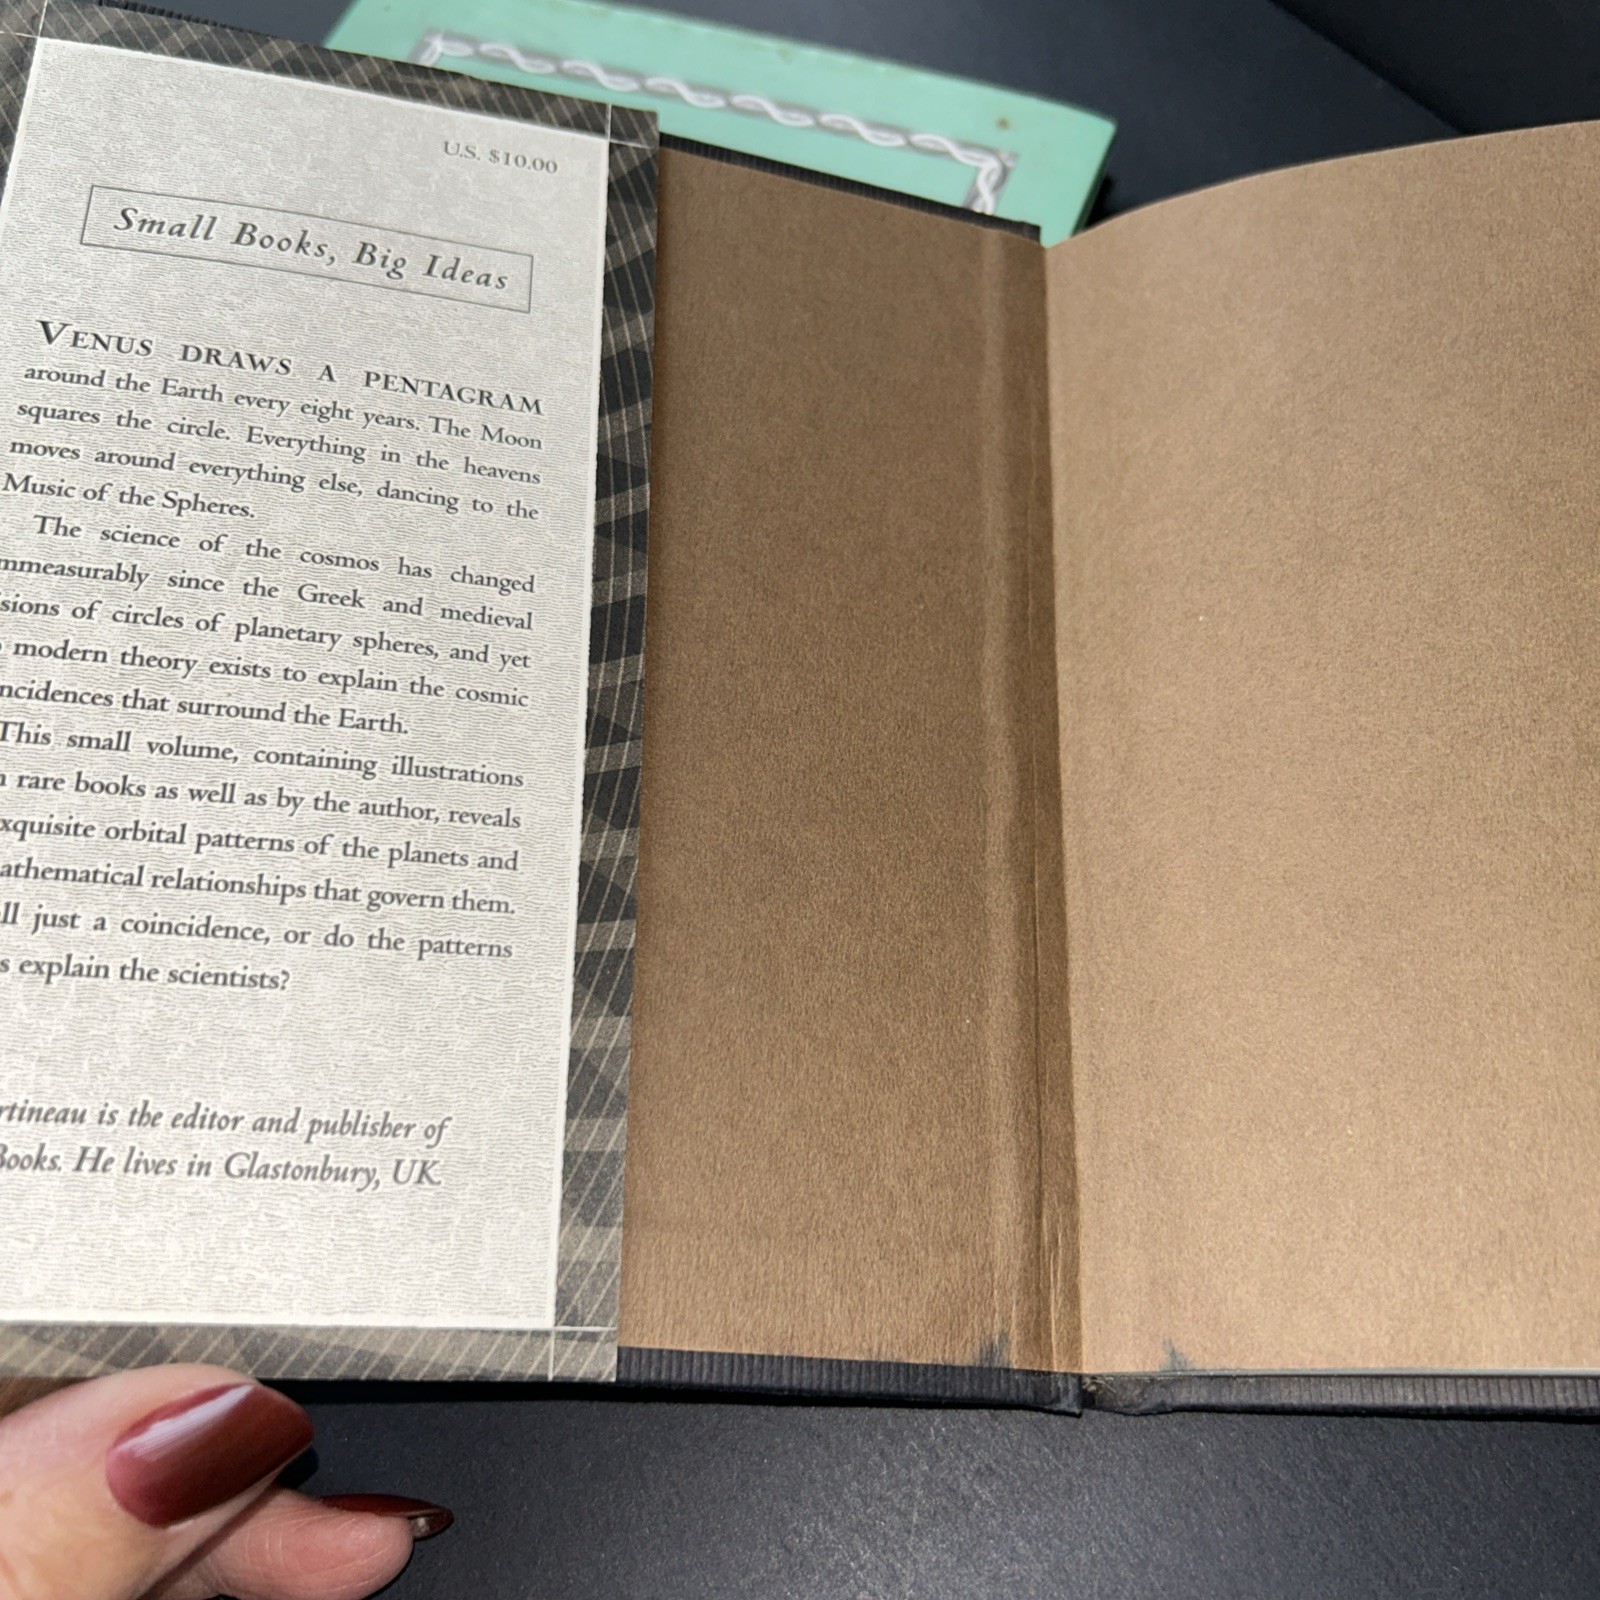 U.S. $10.00
Small Books, Big Ideas
VENUS DRAWS A PENTAGRAM
around the Earth every eight years. The Moon
squares the circle. Everything in the heavens
moves around everything else, dancing to the
Music of the Spheres.
The science of the cosmos has changed
mmeasurably since the Greek and medieval
sions of circles of planetary spheres, and yet
modern theory exists to explain the cosmic
ncidences that surround the Earth.
This small volume, containing illustrations
rare books as well as by the author, reveals
xquisite orbital patterns of the planets and
athematical relationships that govern them.
ll just a coincidence, or do the patterns
s explain the scientists?
rtineau is the editor and publisher of
Books. He lives in Glastonbury, UK.